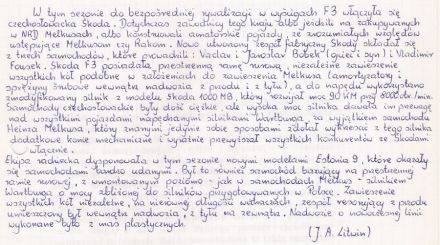 W tym sezonie do bezpośredniej rywalizacji w wyścigach F3 włączyła się
czechosłowacka Skoda. Dotychczas zawodnicy tego kraju albo jeździli na zakupywanych
w NRD Melkusach, albo konstruowali amatorskie pojazdy, ze zrozumiałych względów
ustępujące Melkusom czy Rakom. Nowo utworzony zespół fabryczny Skody składał się
z trzech samochodów, które prowadzili: Vaclav i Jaroslav Bobek (ojciec i syn) i Vladimir
Fousek. Skoda F3 posiadała przestrzenną ramę rurową, niezależne zawieszenie
wszystkich kół podobne w założeniach do zawieszenia Melkusa (amortyzatory i
sprężyny śrubowe wewnątrz nadwozia z przodu i z tyłu), a do napędu wykorzystano
zmodyfikowany silnik z modelu Skoda 1000 MB, który rozwijał moc 90 KM przy obr./min.
Samochody czechosłowackie były dość ciężkie, ale wysoka moc silnika dawała im przewagę
nad wszystkimi pojazdami napędzanymi silnikami Wartburga, za wyjątkiem samochodu
Heinza Melkusa, który znanymi jedynie sobie sposobami zdołał wykrzesać z tego silnika
dodatkowe konie mechaniczne i wyraźnie przewyższał wszystkich konkurentów ze Skodami
włącznie.
Ekipa radziecka dysponowała w tym sezonie nowymi modelami Estonia 9, które okazały
się samochodami bardzo udanymi. Był to również samochód bazujący na przestrzennej
ramie rurowej, z wmontowanym poziomo - jak w samochodach Melkus - silnikiem
Wartburga o mocy zbliżonej do silników przygotowywanych w Polsce. Zawieszenie
wszystkich kół niezależne, na nierównej długości wahaczach, zespół resorujący z przodu
umieszczony był wewnątrz nadwozia, z tyłu na zewnątrz. Nadwozie o nowoczesnej linii
wykonane było z mas plastycznych.
(J. A. Litwin)